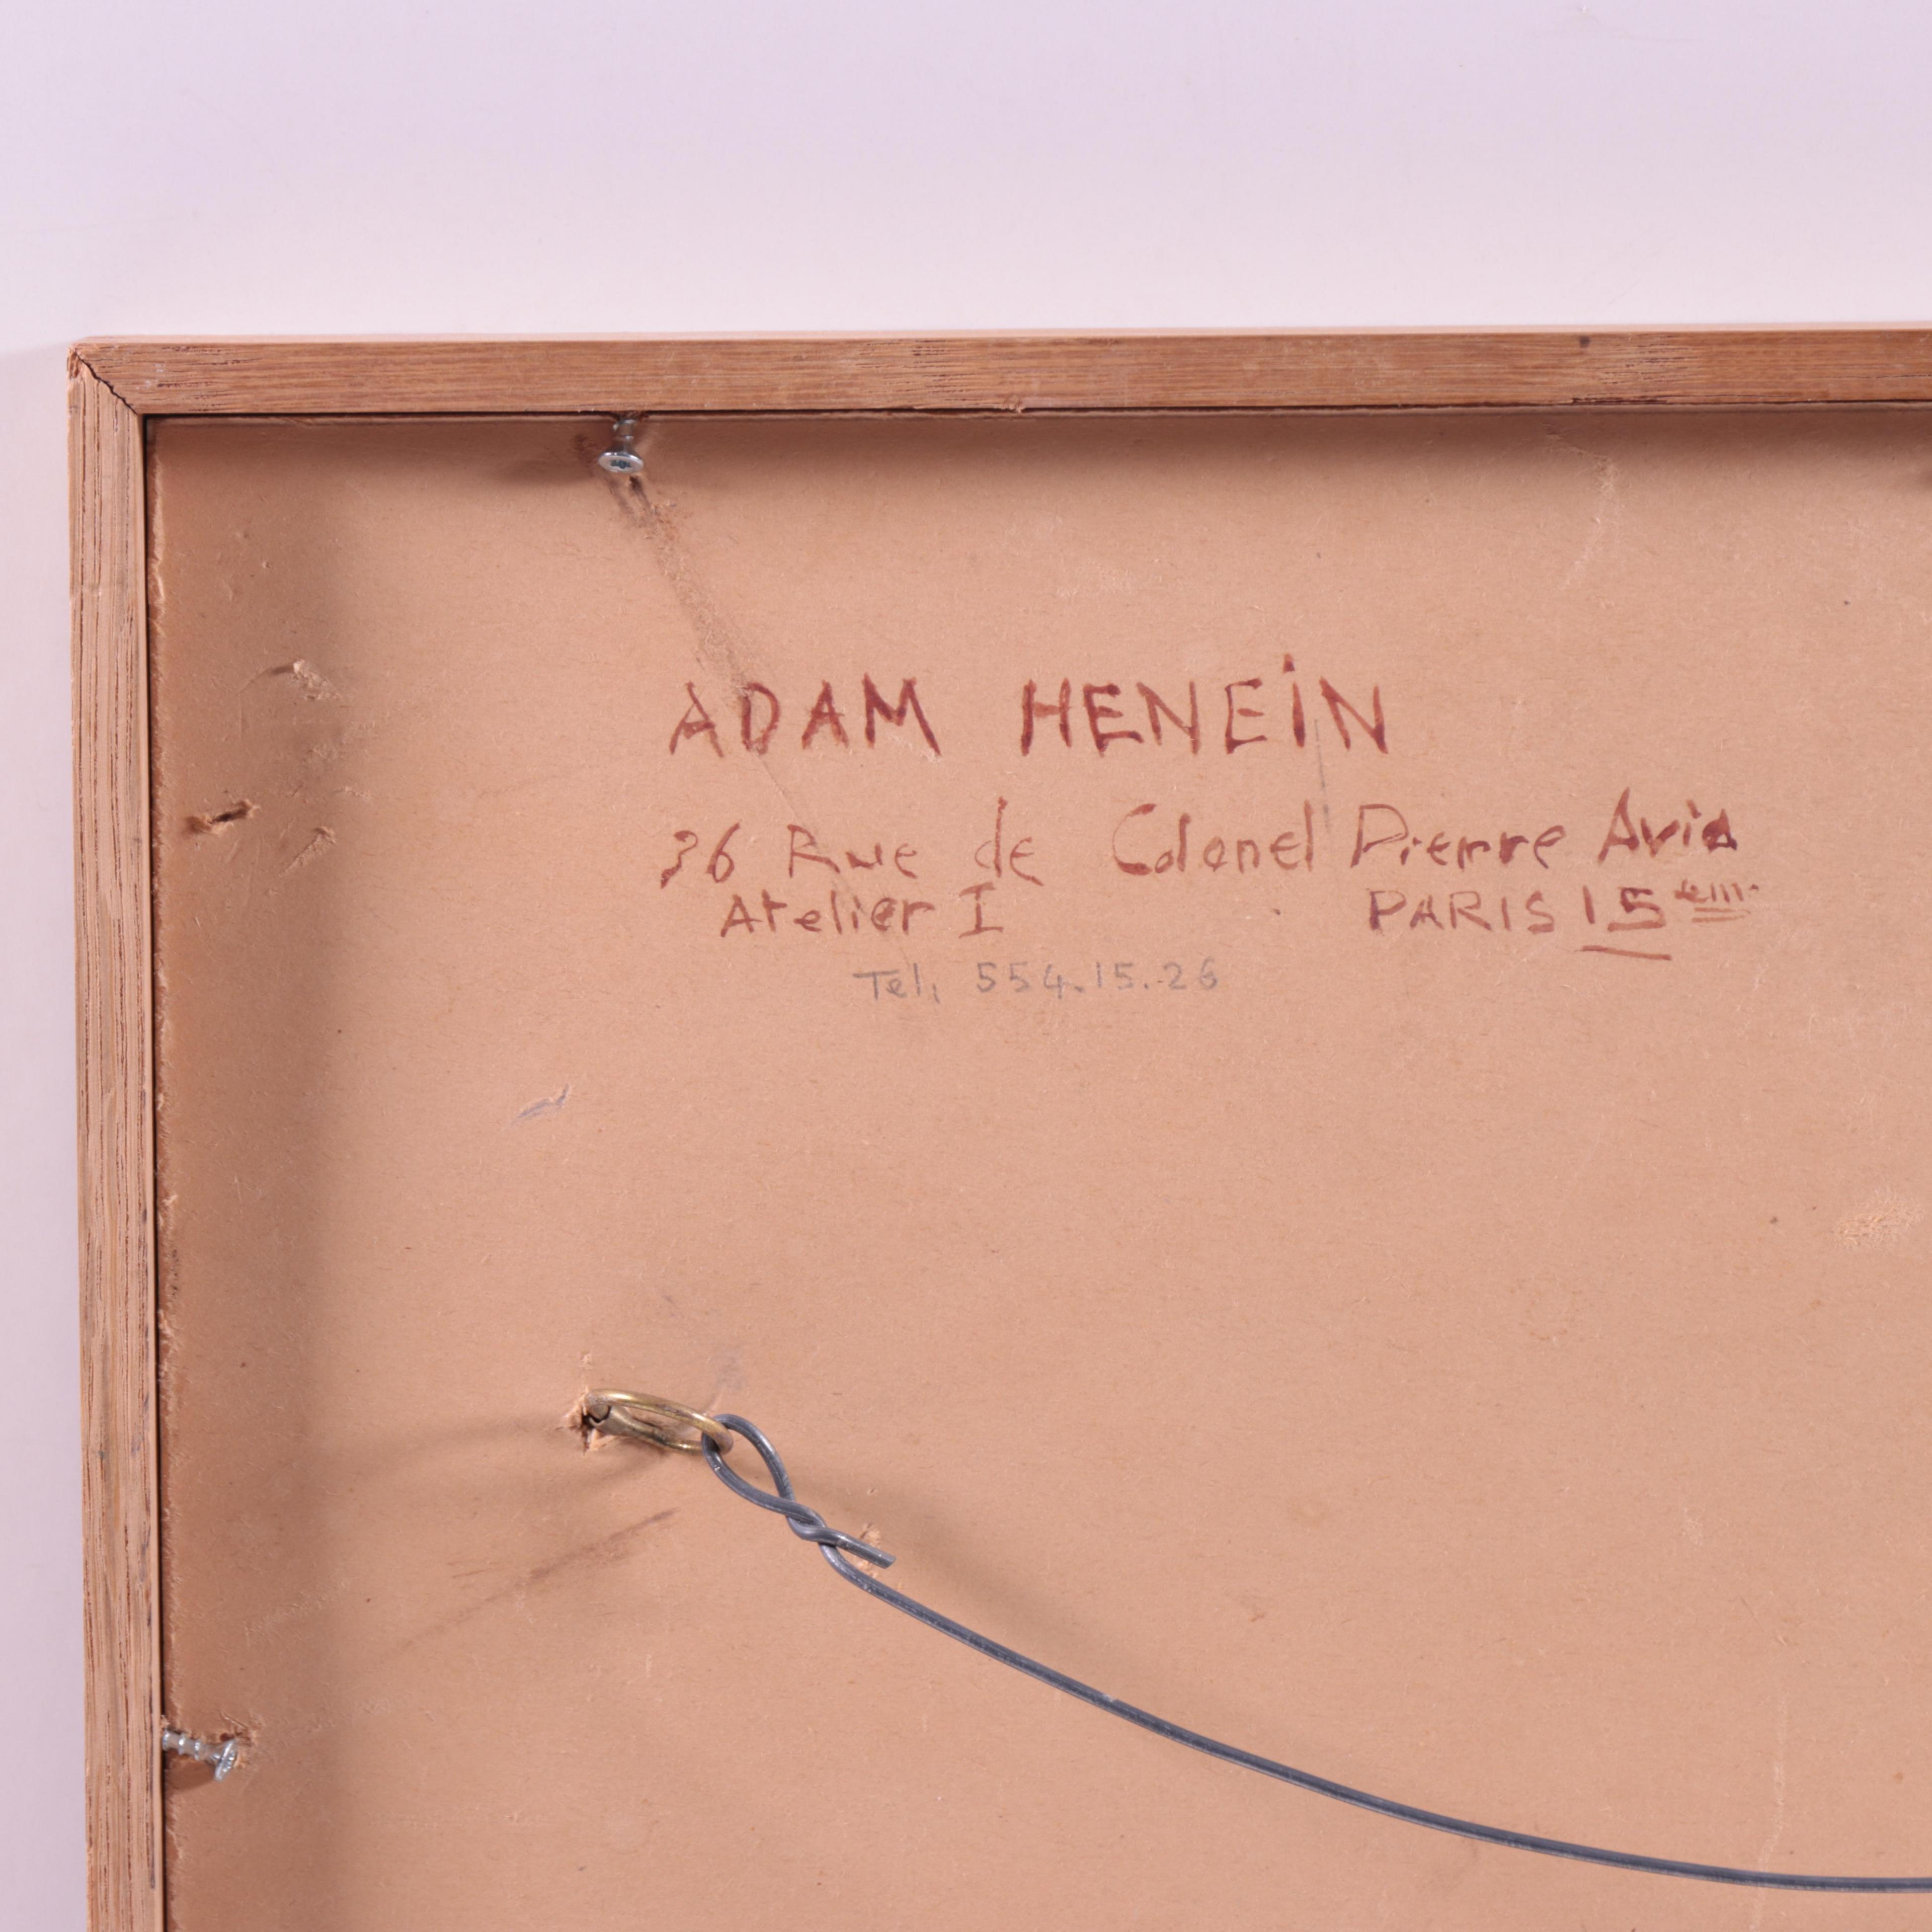 ADAM HENEIN
36 Rue de Colonel Pierre Avia
Atelier I PARIS 15 em.
Tel, 554.15.26